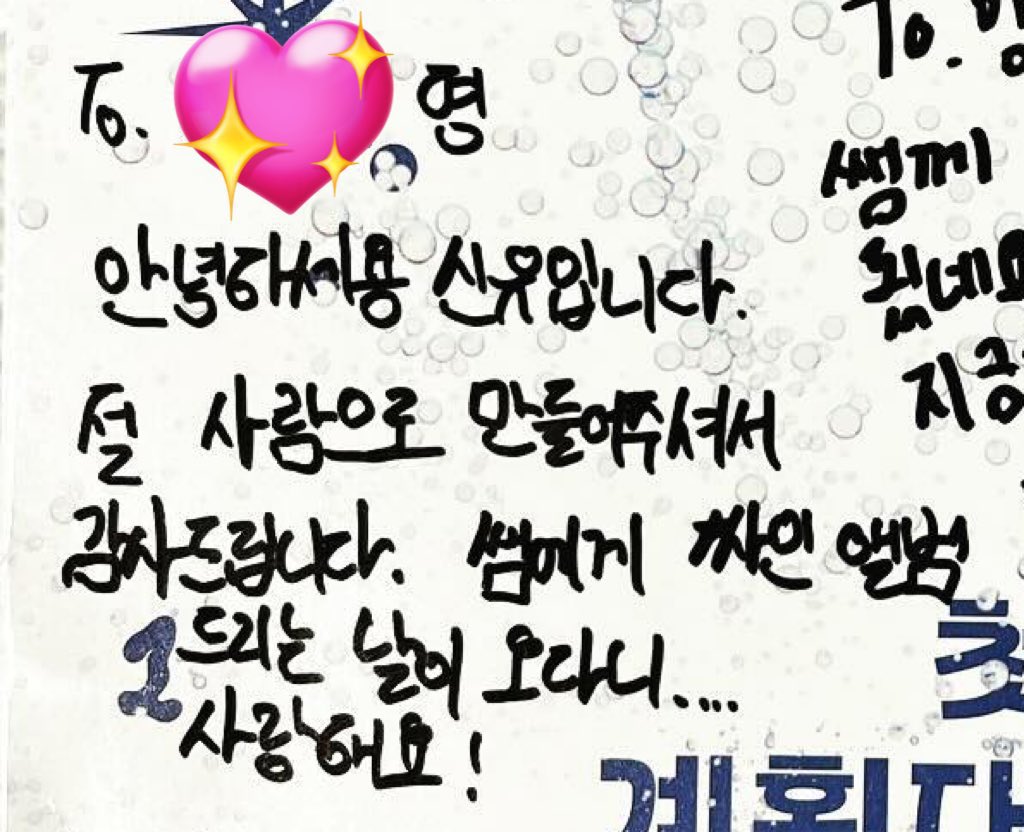 To. 명
안녕하세용 신유입니다.
절 사람으로 만들어주셔서
감사드립니다. 쌤에게 싸인 앨범
드리는 날이 오다니....
사랑해요!
To.
쌩끼
지금
1
계획대